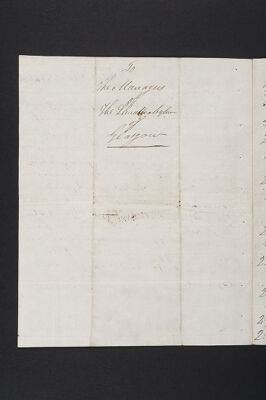 To
The Managers
of
The Lunatic Asylum
of
Glasgow